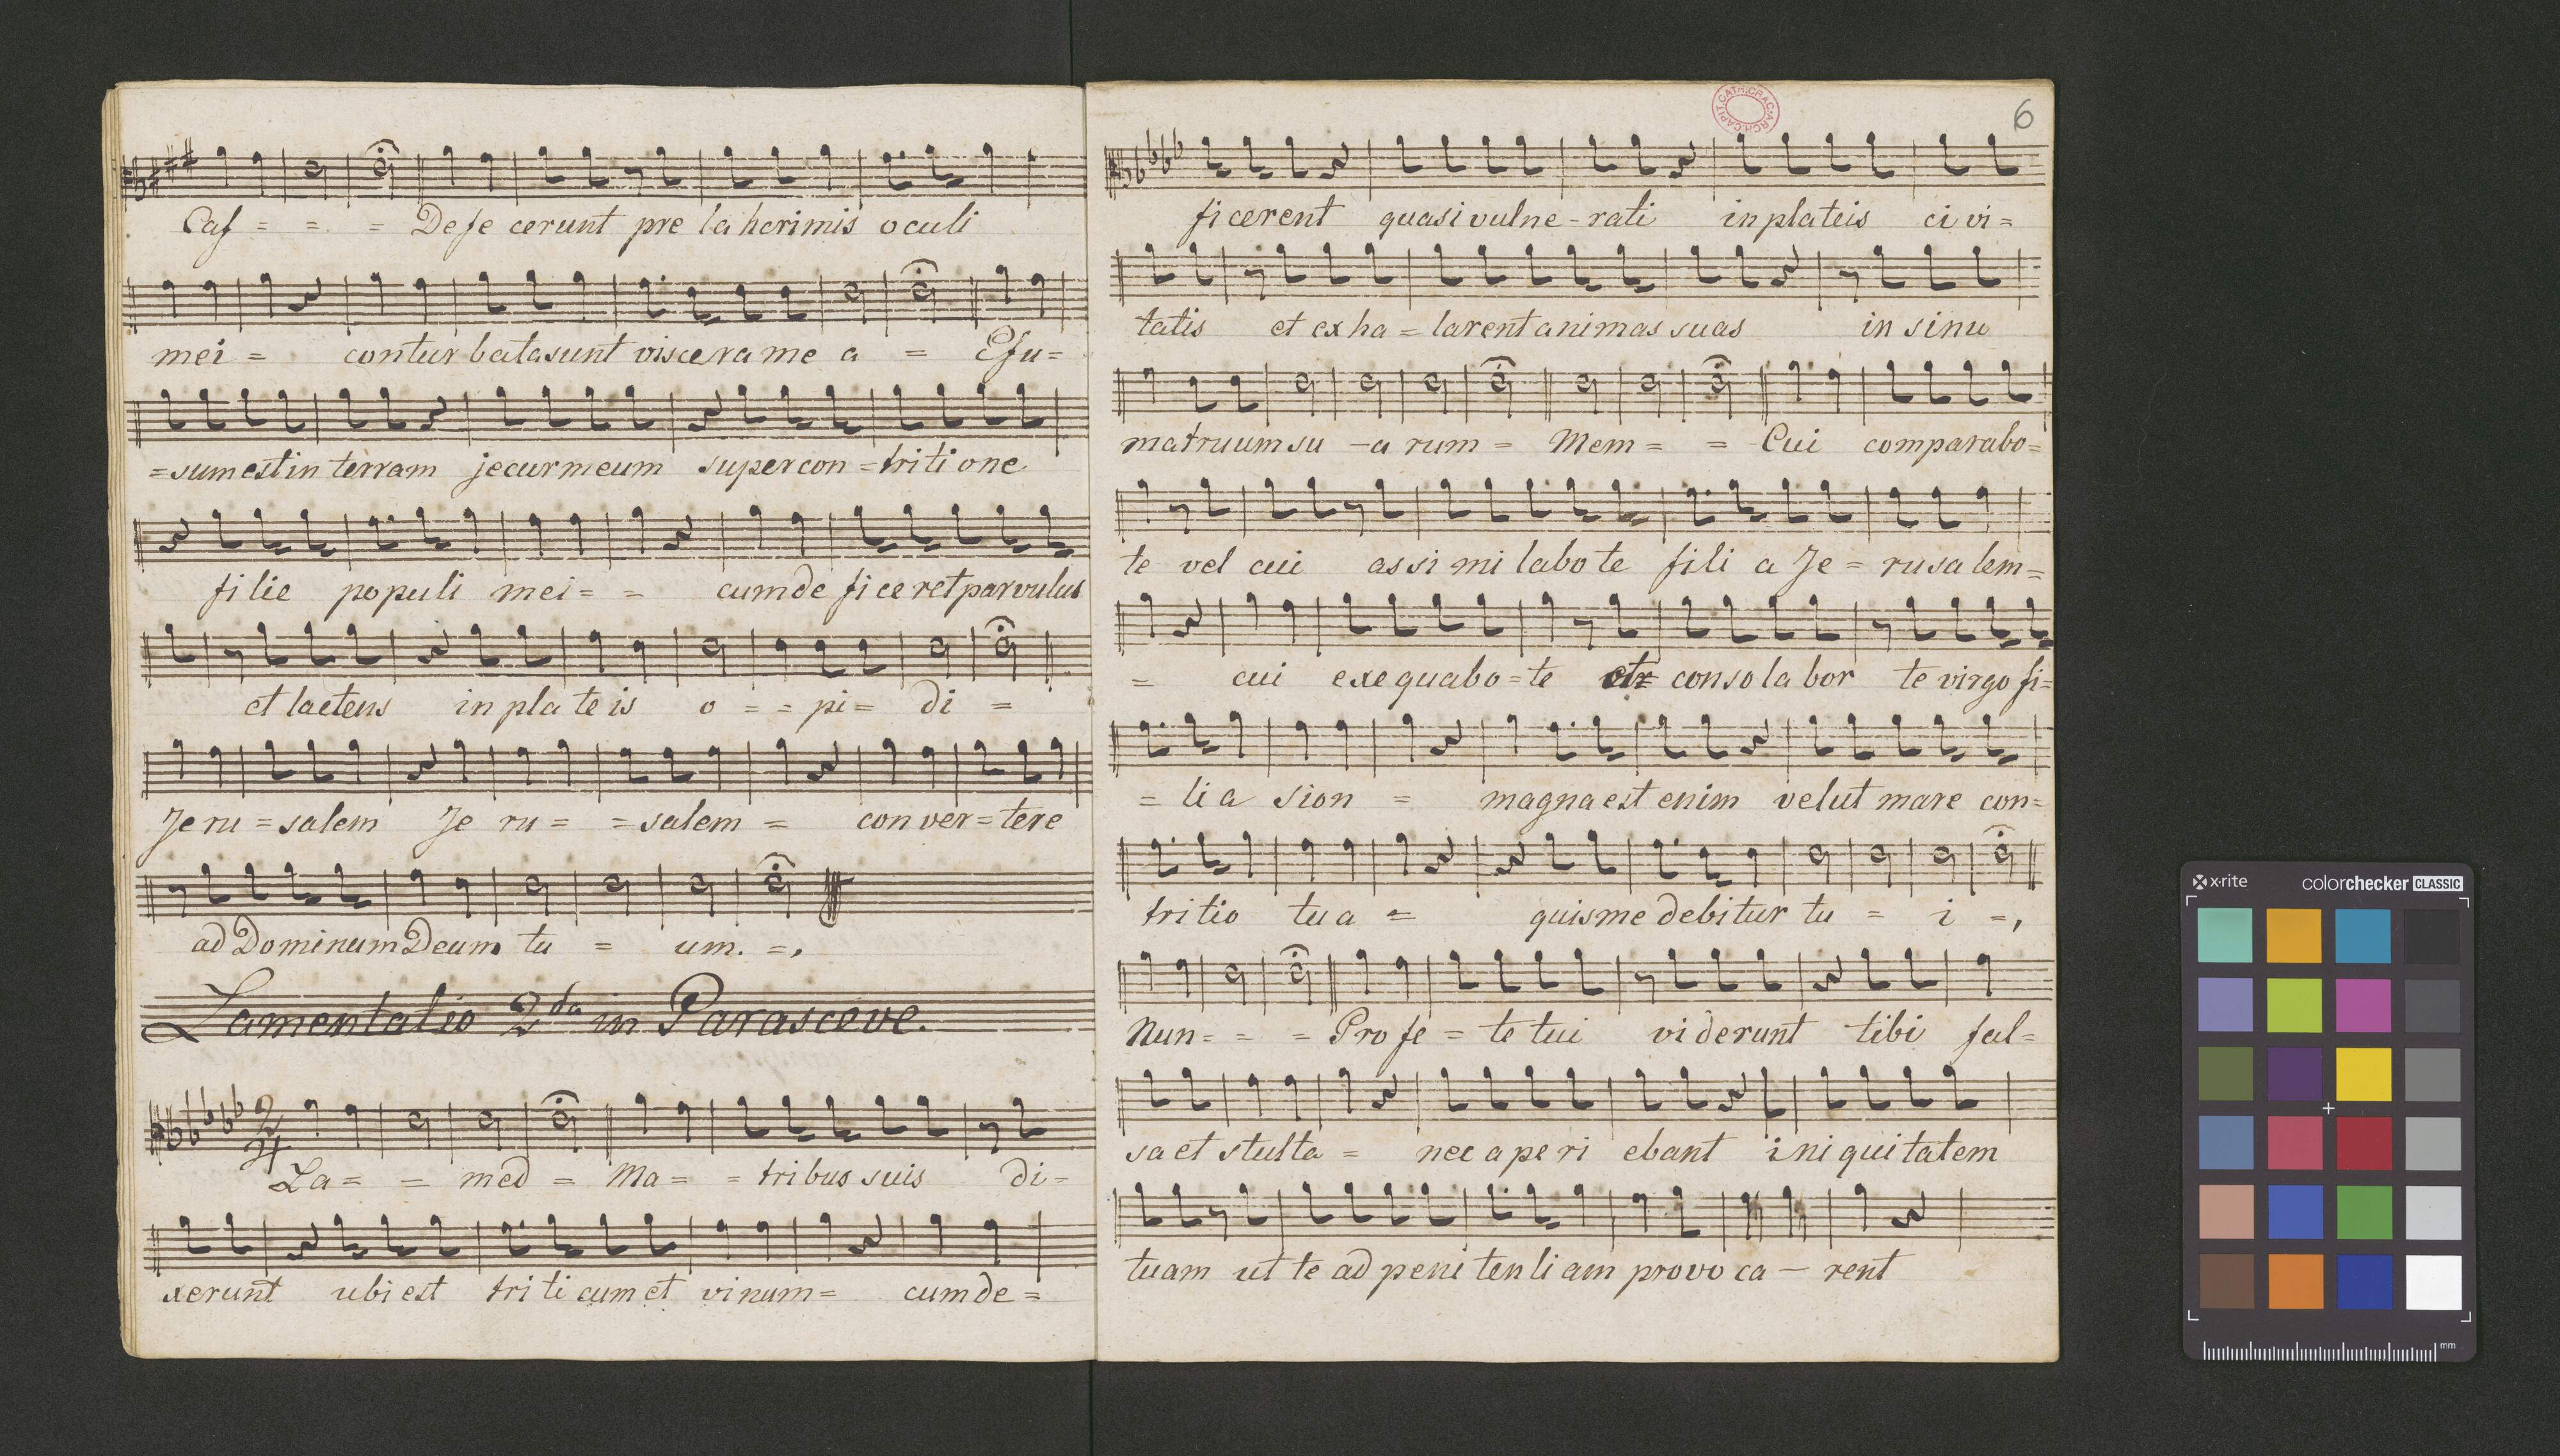 Caf = = = Defe cerunt pre lahcrimis oculi
mei = contur batasunt viscera me a = Efu=
=sum est in terram jecur meum super con =triti one
filie populi mei = = cum de fi ce ret parvulus
et lactens in pla te is o = = pi = di =
Je ru = salem Je ru = = salem = con ver = tere
ad Dominum Deum tu = um. =,
Lamentatio 2da in Parasceve.
2/4
La = = med = Ma = = tribus suis di=
xerunt ubi est tri ti cum et vinum = cum de =
6
ARCH. CAPIT. CATH. CRAC.
ficerent quasi vulne - rati in plateis ci vi =
tatis et ex ha = larent animas suas in sinu
matruum su - a rum = Mem = = Cui comparabo=
te vel cui assi mi labo te fili a Je = rusalem=
= cui exequabo = te et consolabor te virgo fi=
= li a sion = magna est enim velut mare con=
tritio tu a = quis me debitur tu = i =,
Nun = = = Profe = te tui viderunt tibi fal=
sa et stulta = nec a pe ri ebant i ni qui tatem
tuam ut te ad peni ten ti am provo ca — rent
x·rite
colorchecker CLASSIC
mm